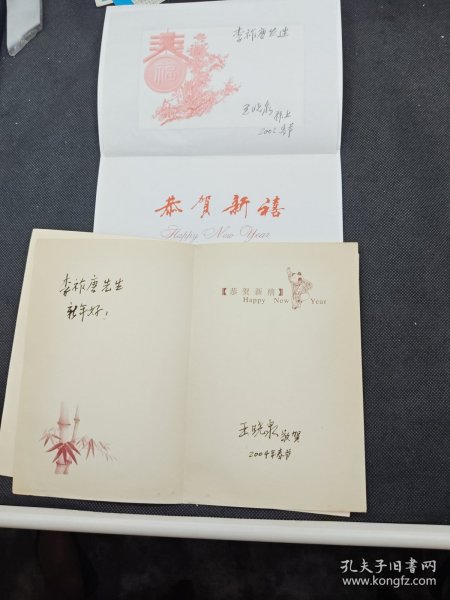 春
福
李祚唐先生
王晓泉
拜上
2002春节
恭贺新禧
Happy New Year
李祚唐先生
新年好！
【恭贺新禧】
Happy New Year
王晓泉敬贺
2004年春节
孔夫子旧书网
www.kongfz.com